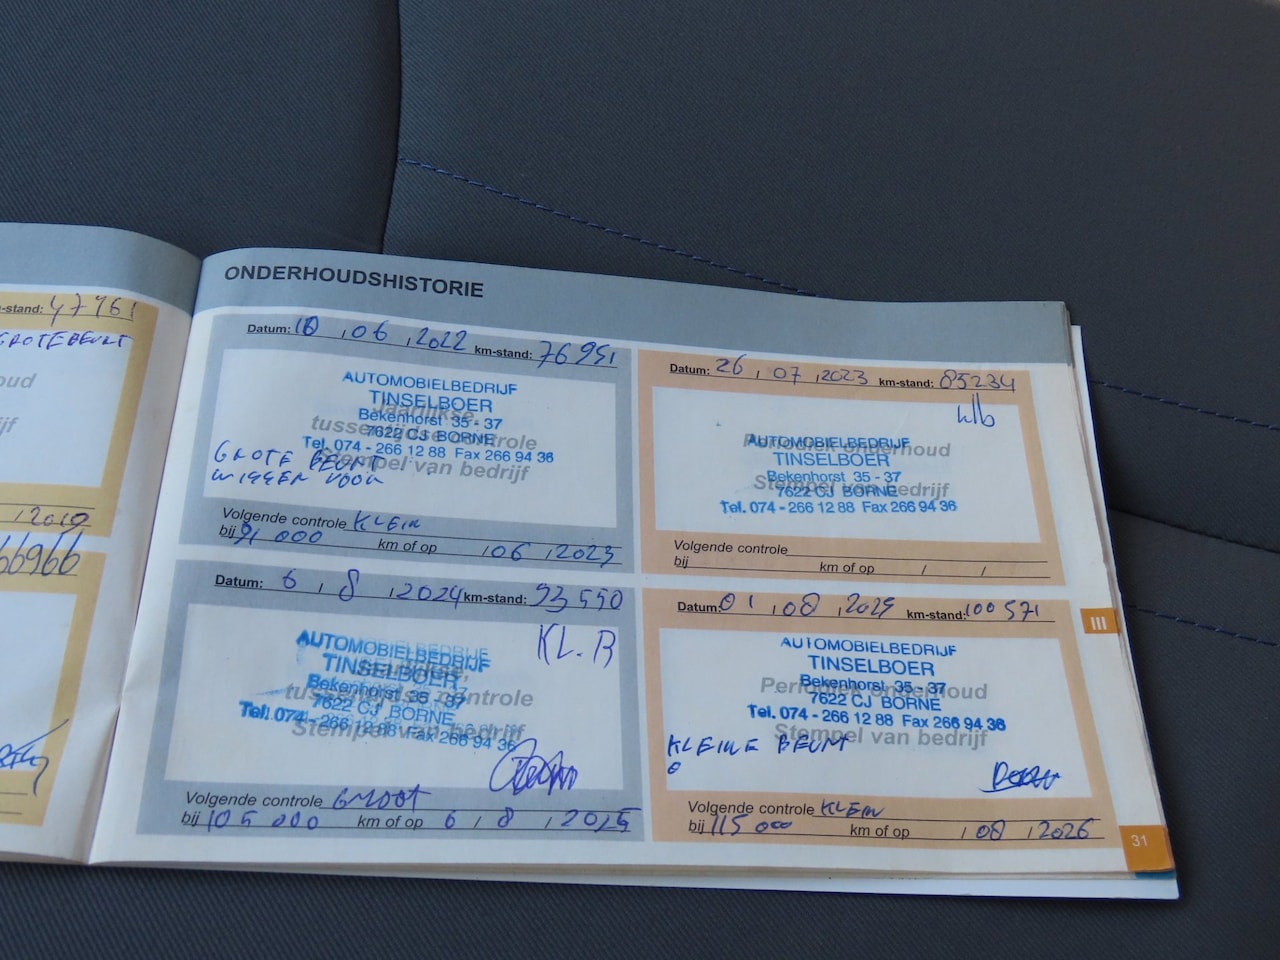 -stand: 47961
GROTE BEURT
oud
jf
2019
66966
ONDERHOUDSHISTORIE
Datum: 10 , 06 , 2022 km-stand: 76951
Jaarlijkse,
tussentijdse controle
Stempel van bedrijf
AUTOMOBIELBEDRIJF
TINSELBOER
Bekenhorst 35 - 37
7622 CJ BORNE
Tel. 074 - 266 12 88 Fax 266 94 36
GROTE BEURT
WISSEN VOOR
Volgende controle KLEIN
bij 91 000 km of op / 06 / 2023
Datum: 26 / 07 / 2023 km-stand: 85234
Periodiek onderhoud
Stempel van bedrijf
AUTOMOBIELBEDRIJF
TINSELBOER
Bekenhorst 35 - 37
7622 CJ BORNE
Tel. 074 - 266 12 88 Fax 266 94 36
Volgende controle
bij km of op / /
Datum: 6 / 8 / 2024 km-stand: 93550
KL. B
Jaarlijkse,
tussentijdse controle
Stempel van bedrijf
AUTOMOBIELBEDRIJF
TINSELBOER
Bekenhorst 35 - 37
7622 CJ BORNE
Tel. 074 - 266 12 88 Fax 266 94 36
Volgende controle GROOT
bij 105 000 km of op 6 / 8 / 2025
Datum: 01 / 08 / 2025 km-stand: 100571
Periodiek onderhoud
Stempel van bedrijf
AUTOMOBIELBEDRIJF
TINSELBOER
Bekenhorst 35 - 37
7622 CJ BORNE
Tel. 074 - 266 12 88 Fax 266 94 36
KLEINE BEURT
Volgende controle KLEIN
bij 115 000 km of op / 08 / 2026
III
31